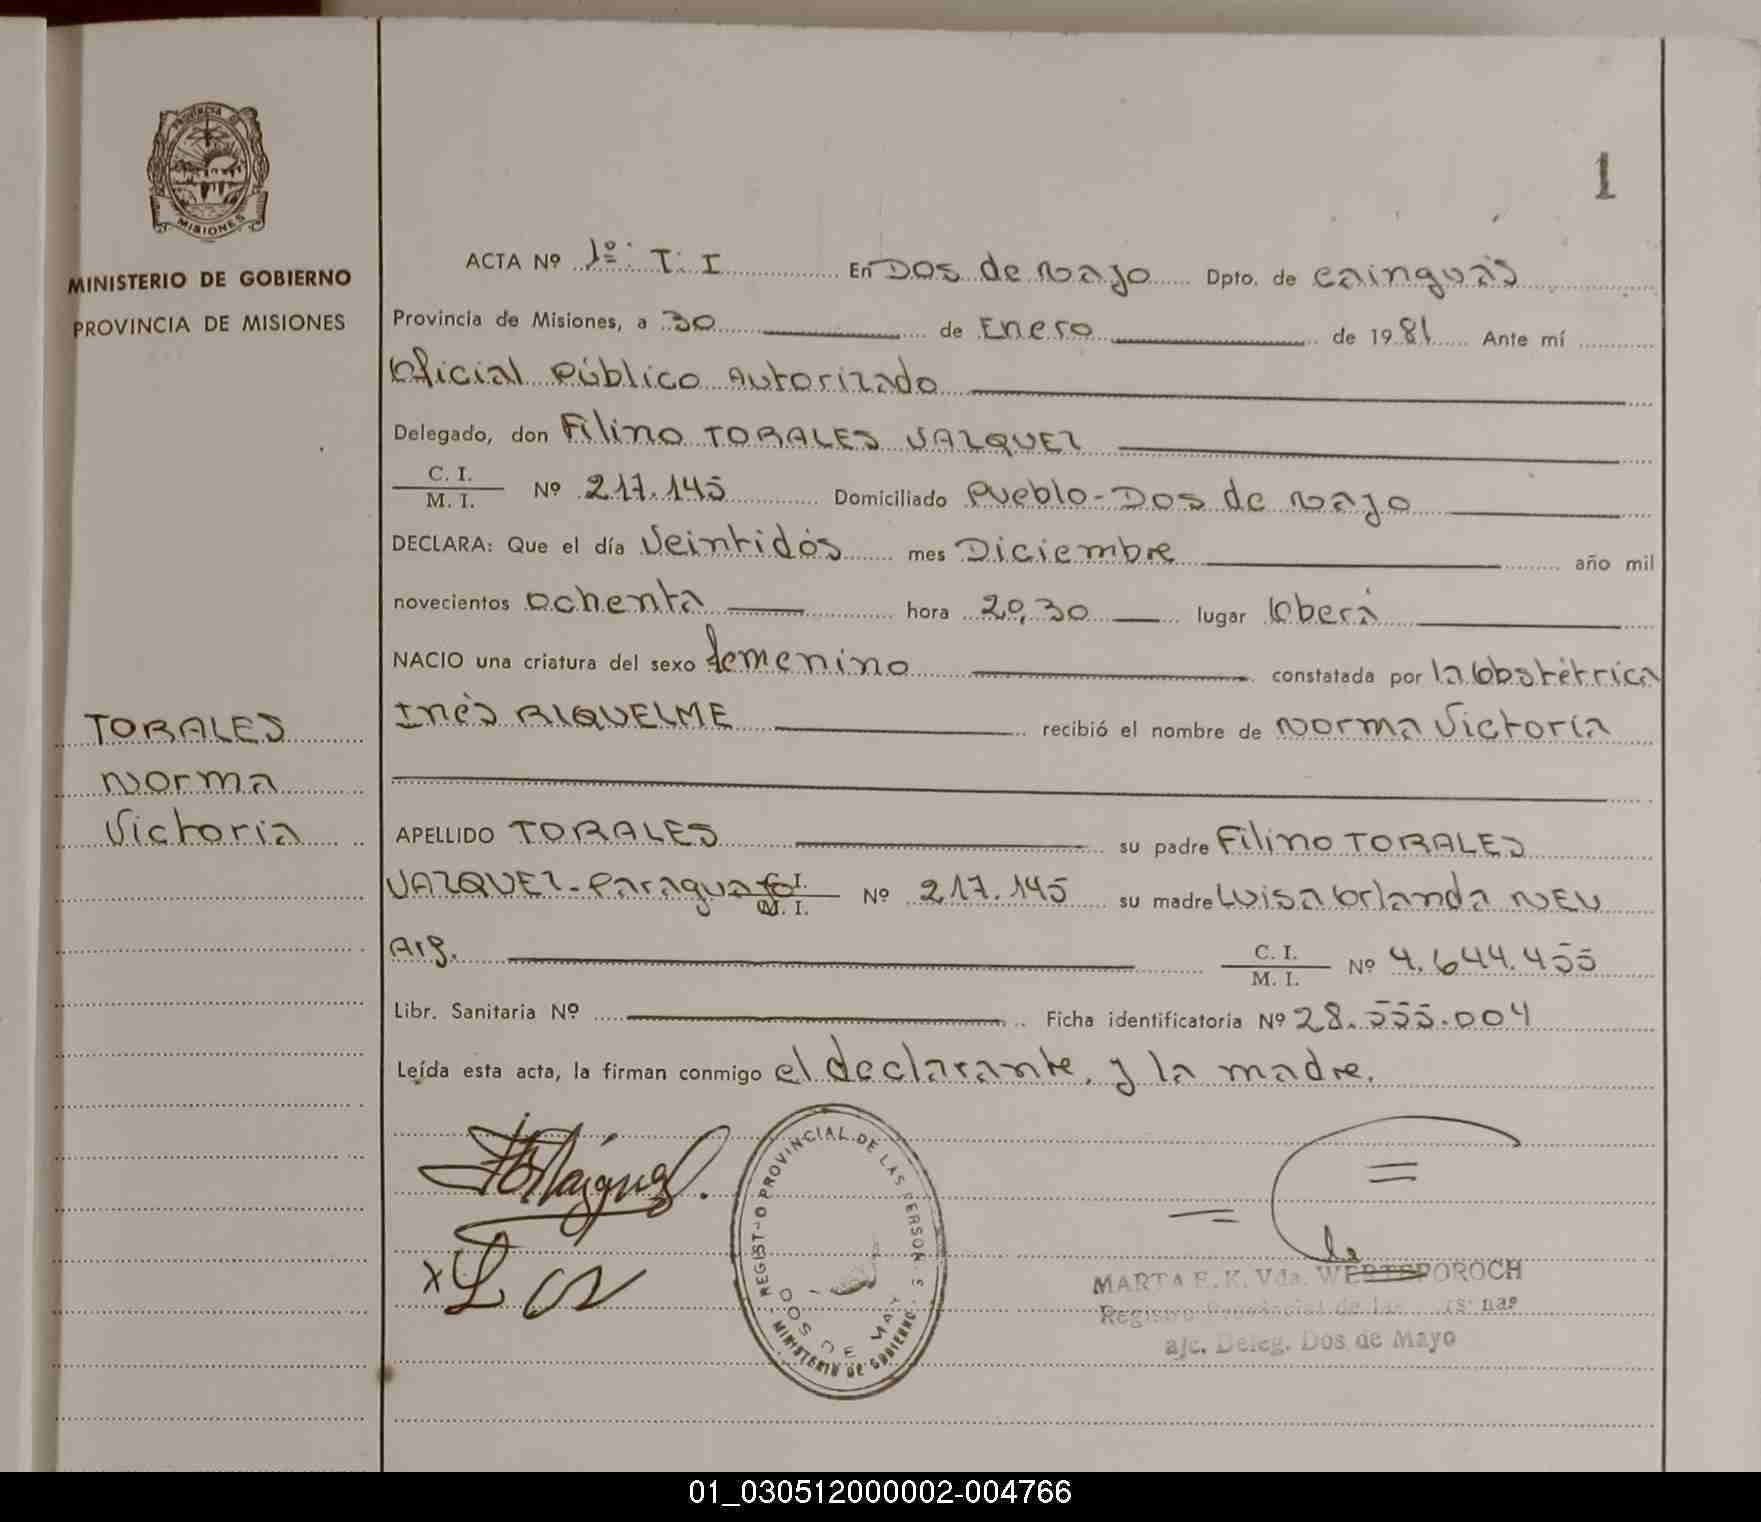 PROVINCIA DE
MISIONES
MINISTERIO DE GOBIERNO
PROVINCIA DE MISIONES
TORALES
Norma
Victoria
1
ACTA Nº 1º: T: I En Dos de Mayo Dpto. de Cainguás
Provincia de Misiones, a 30 de Enero de 1981 Ante mí
Oficial Público Autorizado
Delegado, don Filino TORALES VAZQUEZ
C. I.
M. I. Nº 217.145 Domiciliado Pueblo-Dos de Mayo
DECLARA: Que el día Veintidós mes Diciembre año mil
novecientos ochenta hora 20,30 lugar Oberá
NACIO una criatura del sexo femenino constatada por la Obstétrica
Inés RIQUELME recibió el nombre de Norma Victoria
APELLIDO TORALES su padre Filino TORALES
VAZQUEZ-Paraguayo C. I.
M. I. Nº 217.145 su madre Luisa Orlanda NEU
Arg. C. I.
M. I. Nº 4.644.455
Libr. Sanitaria Nº Ficha identificatoria Nº 28.555.004
Leída esta acta, la firman conmigo el declarante, y la madre.
REGISTRO PROVINCIAL DE LAS PERSONAS
DOS DE MAYO
MINISTERIO DE GOBIERNO
MARTA E. K. Vda. WERTSPOROCH
Registro Provincial de las Personas
a/c. Deleg. Dos de Mayo
01_030512000002-004766